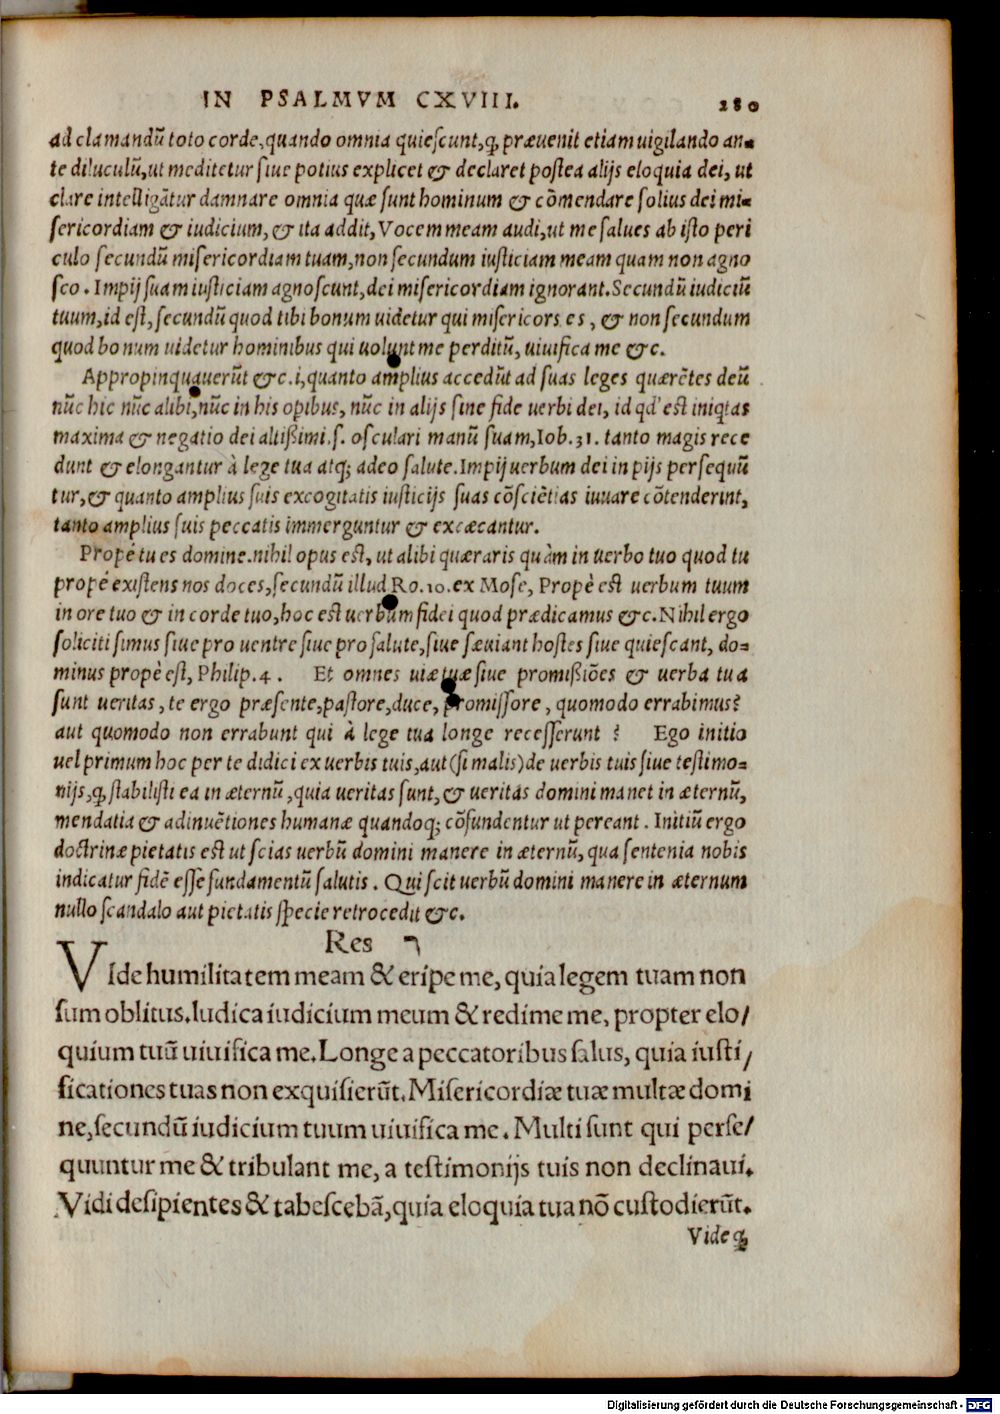 IN PSALMVM CXVIII. 280
ad clamandũ toto corde, quando omnia quiescunt, ꝗ præuenit etiam uigilando an-
te diluculũ, ut meditetur siue potius explicet & declaret postea alijs eloquia dei, ut
clare intelligãtur damnare omnia quæ sunt hominum & cõmendare solius dei mi-
sericordiam & iudicium, & ita addit, Vocem meam audi, ut me salues ab isto peri
culo secundũ misericordiam tuam, non secundum iusticiam meam quam non agno
sco. Impij suam iusticiam agnoscunt, dei misericordiam ignorant. Secundũ iudiciũ
tuum, id est, secundũ quod tibi bonum uidetur qui misericors es, & non secundum
quod bonum uidetur hominibus qui uolunt me perditũ, uiuifica me &c.
Appropinquauerũt &c. i, quanto amplius accedũt ad suas leges quærẽtes deũ
nũc hic nũc alibi, nũc in his opibus, nũc in alijs sine fide uerbi dei, id qd' est iniqtas
maxima & negatio dei altißimi. s. osculari manũ suam, Iob. 31. tanto magis rece
dunt & elongantur à lege tua atq; adeo salute. Impij uerbum dei in pijs persequũ
tur, & quanto amplius suis excogitatis iusticijs suas cõsciẽtias iuuare cõtenderint,
tanto amplius suis peccatis immerguntur & excæcantur.
Propè tu es domine. nihil opus est, ut alibi quæraris quàm in uerbo tuo quod tu
propè existens nos doces, secundũ illud Ro. 10. ex Mose, Propè est uerbum tuum
in ore tuo & in corde tuo, hoc est uerbum fidei quod prædicamus &c. Nihil ergo
soliciti simus siue pro uentre siue pro salute, siue sæuiant hostes siue quiescant, do-
minus propè est, Philip. 4. Et omnes uiæ tuæ siue promißiões & uerba tua
sunt ueritas, te ergo præsente, pastore, duce, promissore, quomodo errabimus?
aut quomodo non errabunt qui à lege tua longe recesserunt? Ego initio
uel primum hoc per te didici ex uerbis tuis, aut (si malis) de uerbis tuis siue testimo-
nijs, ꝗ stabilisti ea in æternũ, quia ueritas sunt, & ueritas domini manet in æternũ,
mendatia & adinuẽtiones humanæ quandoq; cõfundentur ut pereant. Initiũ ergo
doctrinæ pietatis est ut scias uerbũ domini manere in æternũ, qua sentenia nobis
indicatur fidẽ esse fundamentũ salutis. Qui scit uerbũ domini manere in æternum
nullo scandalo aut pietatis specie retrocedit &c.
Res ר
VIde humilitatem meam & eripe me, quia legem tuam non
sum oblitus. Iudica iudicium meum & redime me, propter elo/
quium tuũ uiuifica me. Longe a peccatoribus salus, quia iusti/
ficationes tuas non exquisierũt. Misericordiæ tuæ multæ domi
ne, secundũ iudicium tuum uiuifica me. Multi sunt qui perse/
quuntur me & tribulant me, a testimonijs tuis non declinaui.
Vidi desipientes & tabescebã, quia eloquia tua nõ custodierũt.
Vide ꝗ
Digitalisierung gefördert durch die Deutsche Forschungsgemeinschaft - DFG